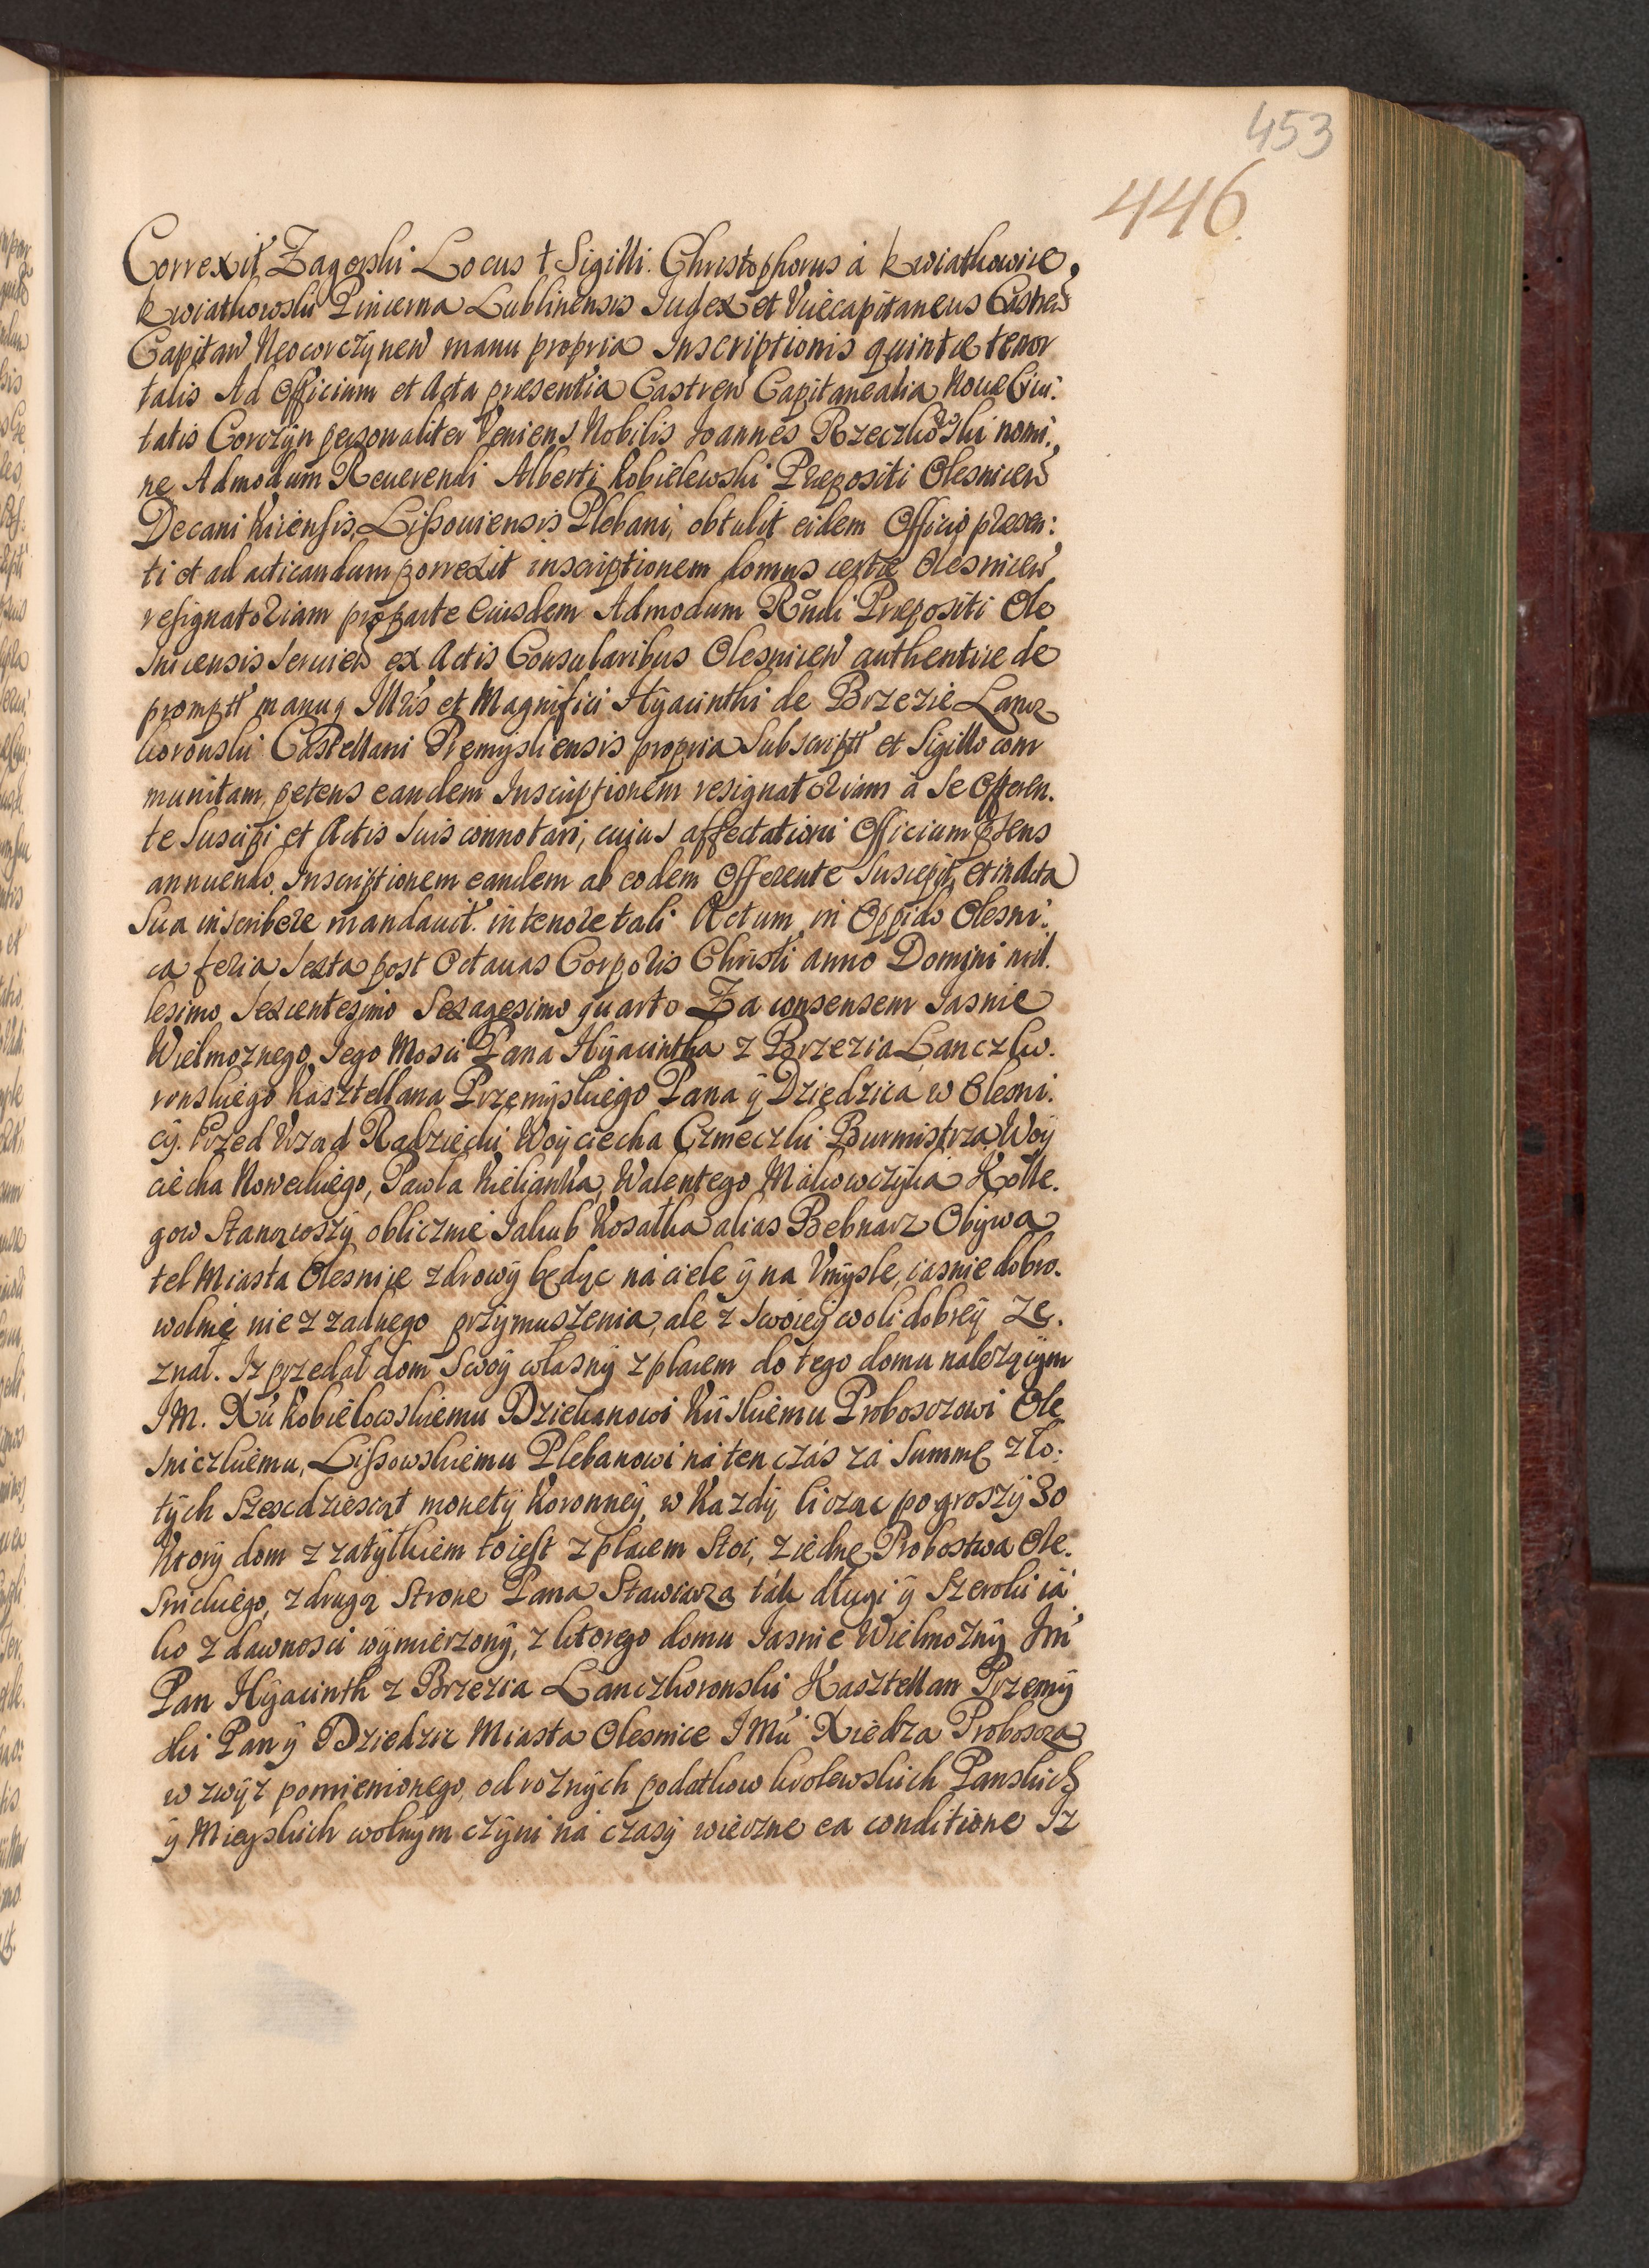 453
446.
Correxit Zagorski Locus † Sigilli. Christophorus á Kwiatkowice
Kwiatkowski Pincerna Lublinensis Judex et Vicecapitaneus Castren
Capitan Neocorczÿnen manu propria Inscriptionis quintæ tenor
talis Ad Officium et Acta præsentia Castren Capitanealia Novæ Civi:
tatis Corczÿn personaliter Veniens Nobilis Joannes Rzeczkowski nomi:
ne Admodum Reuerendi Alberti Kobielewski Præpositi Olesnicen
Decani Kiiensis, Lissouiensis Plebani, obtulit eidem Officio præsen:
ti et ad acticandum porrexit inscriptionem domus certæ Olesnicen
resignatoriam pro parte Eiusdem Admodum Rndi Præpositi Ole
snicensis seruien ex Actis Consularibus Olesnicen authentice de
prompt manuq Illris et Magnifici Hÿacinthi de Brzezie Lancz
koronski Castellani Premÿsliensis propria Subscript et Sigillo com
munitam, petens eandem Inscriptionem resignatoriam á Se Offeren.
te Suscipi et Actis Suis connotari, cuius affectationi Officium præsens
annuendo, Inscriptionem eandem ab eodem Offerente Suscepit, et in Acta
Sua inscribere mandauit. in tenore tali Actum in Oppido Olesni:
ca feria Sexta post Octauas Corporis Christi anno Domini mil.
lesimo Sexcentesimo Sexagesimo quarto Za consensem Jasnie
Wielmoznego Jego Mosci Pana Hÿacintha z Brzezia Lanczko.
ronskiego Kasztellana Przemÿskiego Pana ÿ Dziedzica w Olesni.
cÿ. Przed Vrzad Radziecki Woÿciecha Czmeczki Burmistrza, Woÿ
ciecha Noweckiego, Pawła Kielianka, Walentego Makowczÿka Kolle.
gow Stanąwszÿ oblicznie Jakub Kosatka alias Bebnarz Obÿwa
tel Miasta Olesnice zdrowÿ będąc ná ciele ÿ na Vmÿsle, iasnie dobro.
wolnie nie z zadnego przÿmuszenia, ale z Swoieÿ woli dobreÿ Ze.
znał. Iz przedał dom Swoÿ własnÿ z placem do tego domu nalezącÿm
JM. Xu Kobielowskiemu Dziekanowi Kiiskiemu Proboszczowi Ole
sniczkiemu, Lissowskiemu Plebanowi ná ten czás zá Summę zło:
tÿch Szescdziesiąt monetÿ Koronneÿ, w Kazdÿ licząc po groszÿ 30
Ktorÿ dom z zatÿlkiem to iest z placem Stoi, z iednę Probostwa Ole.
snickiego, z drugą Strone Pana Stawiarza ták długi ÿ Szeroki iá
ko z dawnosci wÿmierzonÿ, z ktorego domu Jasnie Wielmoznÿ Jm
Pan Hÿacinth z Brzezia Lanczkoronski Kasztellan Przemÿ
ski Pan ÿ Dziedzic Miasta Olesnice JMu Xiedza Proboscza
w zwÿz pomienionego, od roznÿch podatkow krolewskich Panskich
ÿ Mieÿskich wolnÿm czÿni ná czasÿ wieczne ea conditione Iz